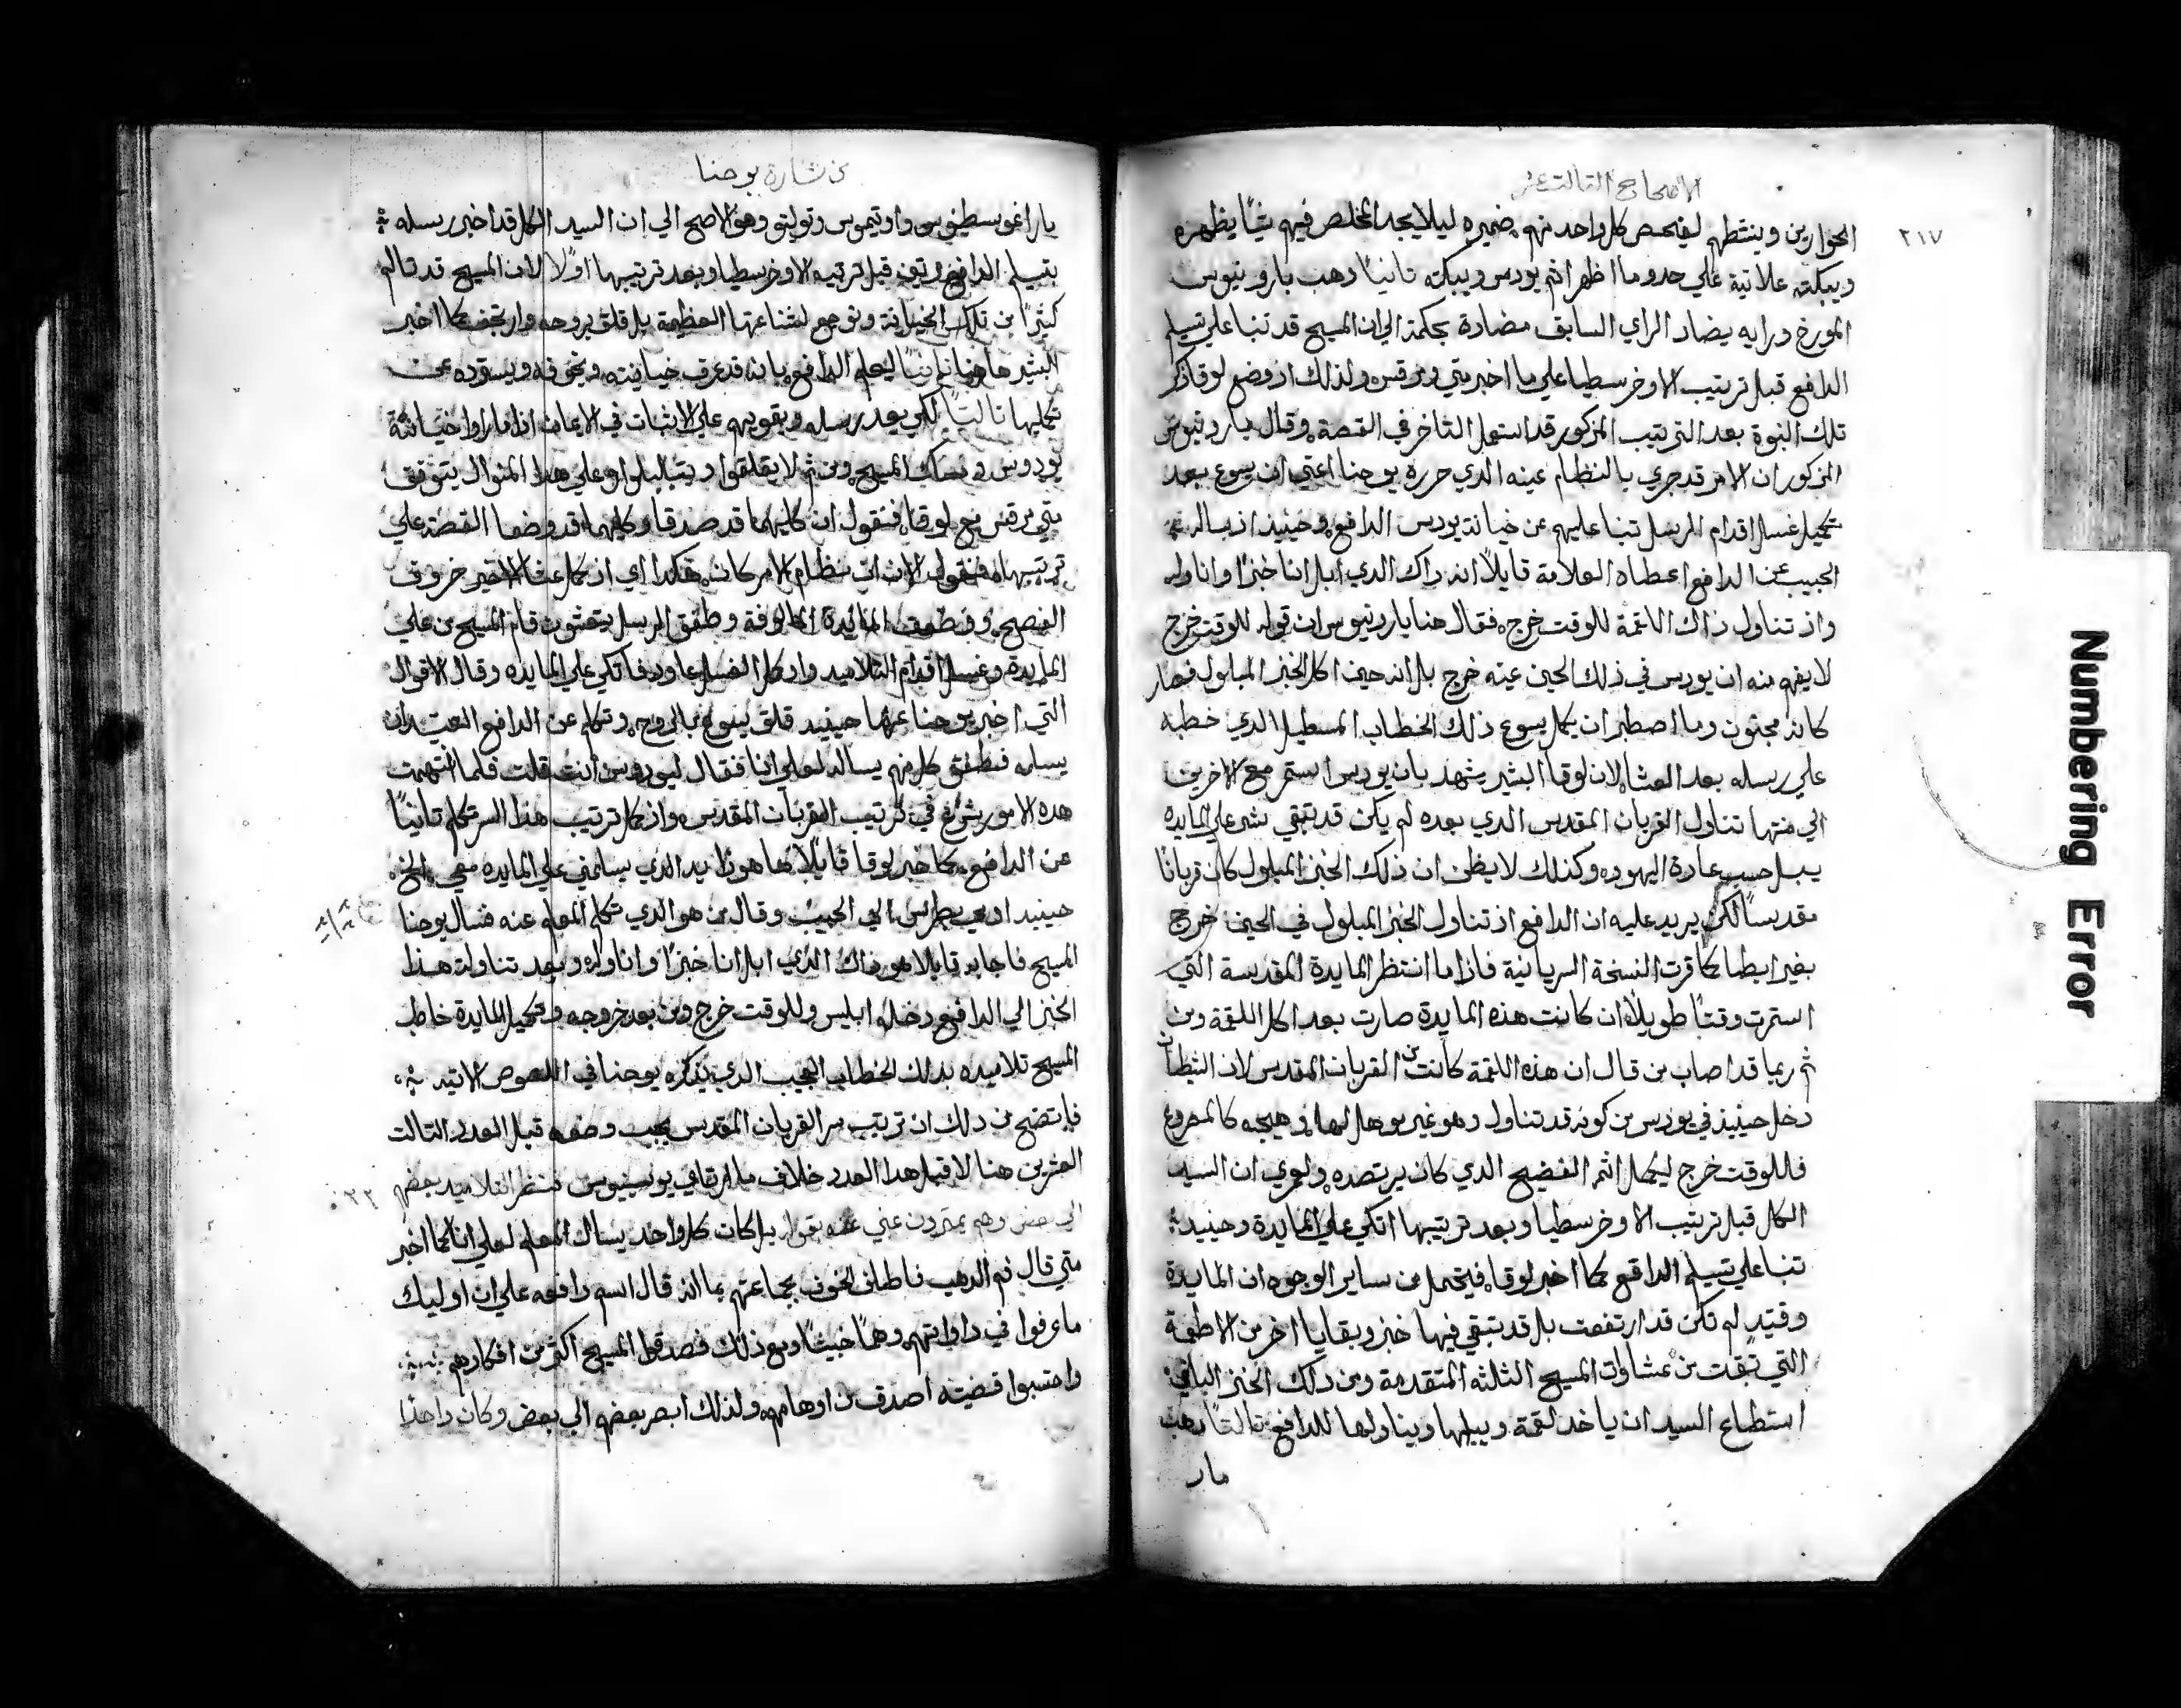 الاصحاح الثالث عشر
٢١٧
الحوارين وينشطهم ليفحص كل واحد منهم ضميره ليلا يجد المخلص فيهم شيئًا يظهره
ويبكته علانية علي حدو ما اظهر اثم يودس ويبكته ثانيًا دهب بارونيوس
المورخ ورايه يضاد الراي السابق مضادة بحكمة الي ان المسيح قد تنبا علي تسيلم
الدافع قبل ترتيب الاوخرسطيا علي ما اخبر متي ومرقس ولذلك اذ وضع لوقا ذكر
تلك النبوة بعد الترتيب المزكور قد استعمل التاخر في القصة وقال بارونيوس
المزكور ان الامر قد جري بالنظام عينه الدي حرره يوحنا اعني ان يسوع بعد
تكميل غسل اقدام الرسل تنبا عليهم عن خيانة يودس الدافع وحينيذ اذ ساله
الحبيب عن الدافع اعطاه العلامة قايلاً انه داك الدي ابل انا خبزًا واناوله
واذ تناول ذاك اللقمة للوقت خرج فقال هنا بارونيوس ان قوله للوقت خرج
لا يفهم منه ان يودس في ذلك الحين عينه خرج بل انه حين اكل الخبز المبلول فصار
كانه مجنون وما اصطبر ان يكمل يسوع ذلك الخطاب المسطيل الدي خطبه
علي رسله بعد العشا لان لوقا البشير يشهد بان يودس استمر مع الاخرين
الي منتها تناول القربان المقدس الدي بعده لم يكن قد تبقي شي علي المايده
يبل حسب عادة اليهود وكذلك لا يظن ان ذلك الخبز المبلول كان قربانًا
مقدسًا لكن يريد عليه ان الدافع اذ تناول الخبز المبلول في الحين خرج
بغير ابطا كما قرت النسخة السريانية فاذا ما انتظر المايدة المقدسة التي
استمرت وقتًا طويلاً ان كانت هذه المايدة صارت بعد اكل اللقمة ومن
ثم ربما قد اصاب من قال ان هذه اللقمة كانت من القربان المقدس لان الشيطان
دخل حينيذ في يودس من كونه قد تناول وهو غير موهل لها وهيجه كالمصروع
فللوقت خرج ليكمل اثم الفضيح الدي كان يرتصده ولعمري ان السيد
الكل قبل ترتيب الاوخرسطيا وبعد ترتيبها اتكي علي المايدة وحينيد
تنبا علي تسيلم الدافع كما اخبر لوقا فيتحصل من ساير الوجوه ان المايدة
وقتيدٍ لم تكن قد ارتفعت بل قد تبقي فيها خبز وبقايا اخر من الاطعمة
التي تبقت من عشاوات المسيح الثلثه المتقدمة ومن دلك الخبز الباقي
استطاع السيد ان ياخد لقمة ويبلها ويناولها للدافع ثالتًا دهب
مار
من بشارة يوحنا
وهو الاصح الي ان السيد الكل قد اخبر رسله
بتسيلم الدافع مرتين قبل ترتيبه الاوخرسطيا وبعد ترتيبها اولاً لان المسيح قد تالم
كثيرًا من تلك الخيانة وتوجع لشناعتها العظيمة بل قلق بروحه وارتجف كما اخبر
البشير هاهنا ثانيًا ليعلم الدافع بانه قد عرف خيانته ويخوفه ويسترده عن
تكميلها ثالتًا لكي يعد رسله ويقويهم علي الاثبات في الايمان اذا ما راوا خيانة
يودوس ومساك المسيح ومن ثم لا يقلقوا ويتبلبلوا وعلي هدا المنوال يتوفق
متي مرقس مع لوقا فنقول ان كليهما قد صدقا وكليهما قد وضعا القصة علي
ترتيبها فنقول الان ان نظام الامر كان هكدا اي اذ كمل عشا الاخير خروف
الفصح ووضعت المايدة المالوفة وطفق الرسل يتعشون قام المسيح من علي
المايدة وغسل اقدام التلاميد واد كمل الغسل عاود فاتكي علي المايده وقال الاقوال
التي اخبر يوحنا عنها حينيد قلق يسوع بالروح وتكلم عن الدافع العتيد ان
يسلمه فطفق كل منهم يساله لعلي انا فقال ليودوس انت قلت فلما انتهت
هده الامور شرع في ترتيب القربان المقدس واذ كمل ترتيب هذا السر تكلم ثانيًا
عن الدافع كما خبر لوقا قايلاً ها هوذا يد الدي يسلمني علي المايده معي الخ
حينيد اومي بطرس الي الحبيب وقال من هو الدي تكلم المعلم عنه فسال يوحنا
المسيح فاجابه قايلا هو ذاك الذي ابل انا خبزًا واناوله وبعد تناولت هذا
الخبز الي الدافع دخله ابليس وللوقت خرج ومن بعد خروجه وتكميل المايدة خاطب
المسيح تلاميده بدلك الخطاب العجيب الدي يدكره يوحنا في النصوص الاتيه
فاتضح من دلك ان ترتيب سر القربان المقدس يجب وضعه قبل العدد التالت
العشرين هنا لا قبل هدا العدد خلاف ما ارتاي فنظر التلاميد بعضهم
٢٢
الي بعض وهم يمترون عني عنه بقوله بل كان كل واحد يسال المعلم لعلي انا كما اخبر
متي قال فم الدهب فاطلق الخوف بجماعتهم بما انه قال اسم دافعه علي ان اوليك
ما عرفوا في داواتهم وهمًا خبيثًا ومع ذلك فصدقوا المسيح اكثر من افكارهم
واحتسبوا قضيته اصدق من اوهامهم ولذلك ابصر بعضهم الي بعض وكان واحدًا
Numbering Error